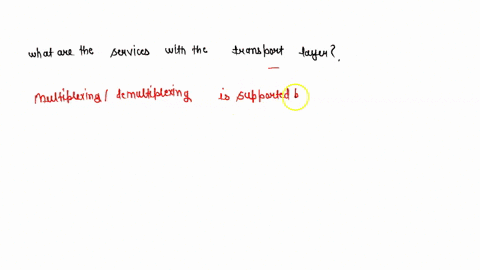 what are the services with the transport layer?.
Multiplexing / demultiplexing is supported b